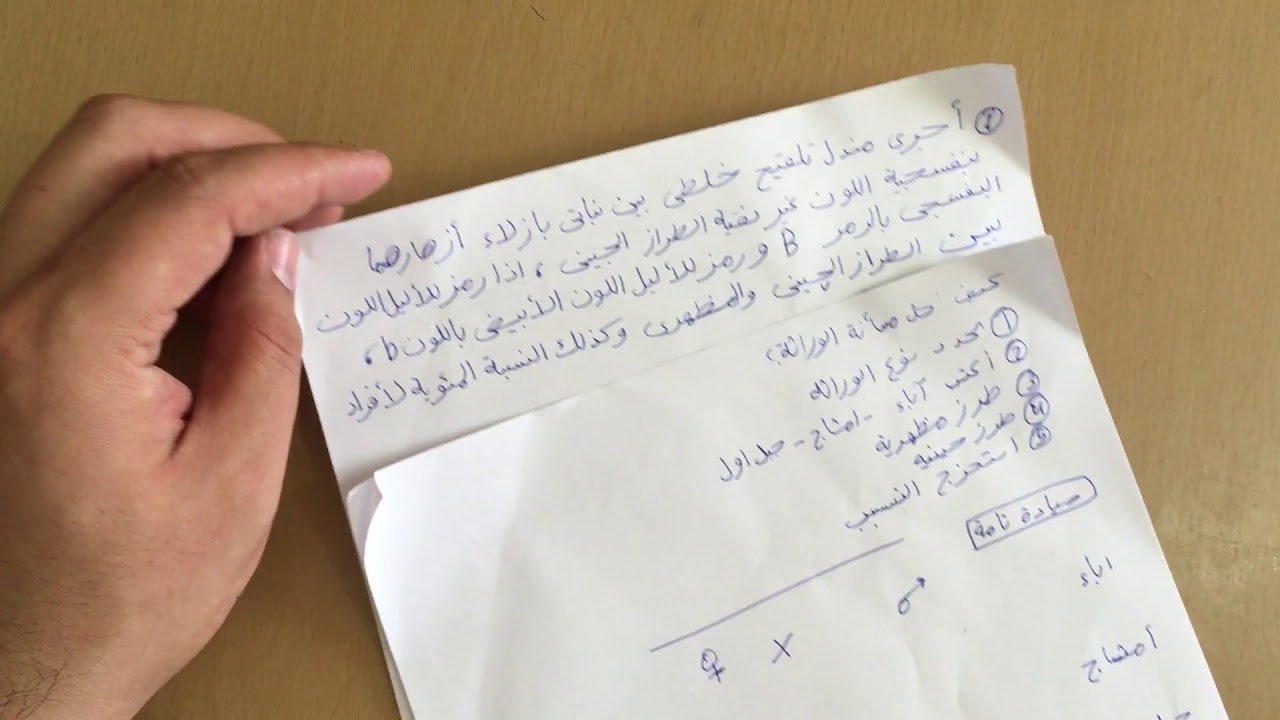 ① أجرى مندل تلقيح خلطي بين نباتي بازلاء أزهارهما
بنفسجية اللون غير نقية الطراز الجيني ، اذا رمز للأليل اللون
البنفسجي بالرمز B و رمز للأليل اللون الأبيض باللون b ،
بين الطراز الجيني والمظهري وكذلك النسبة المئوية لأفراد
كيف احل مسألة الوراثة؟
① نحدد نوع الوراثة
② أكتب آباء - امشاج - جيل اول
③ طرز مظهرية
④ طرز جينيه
⑤ استخرج النسب
سيادة تامة
اباء
♀ X ♂
أمشاج